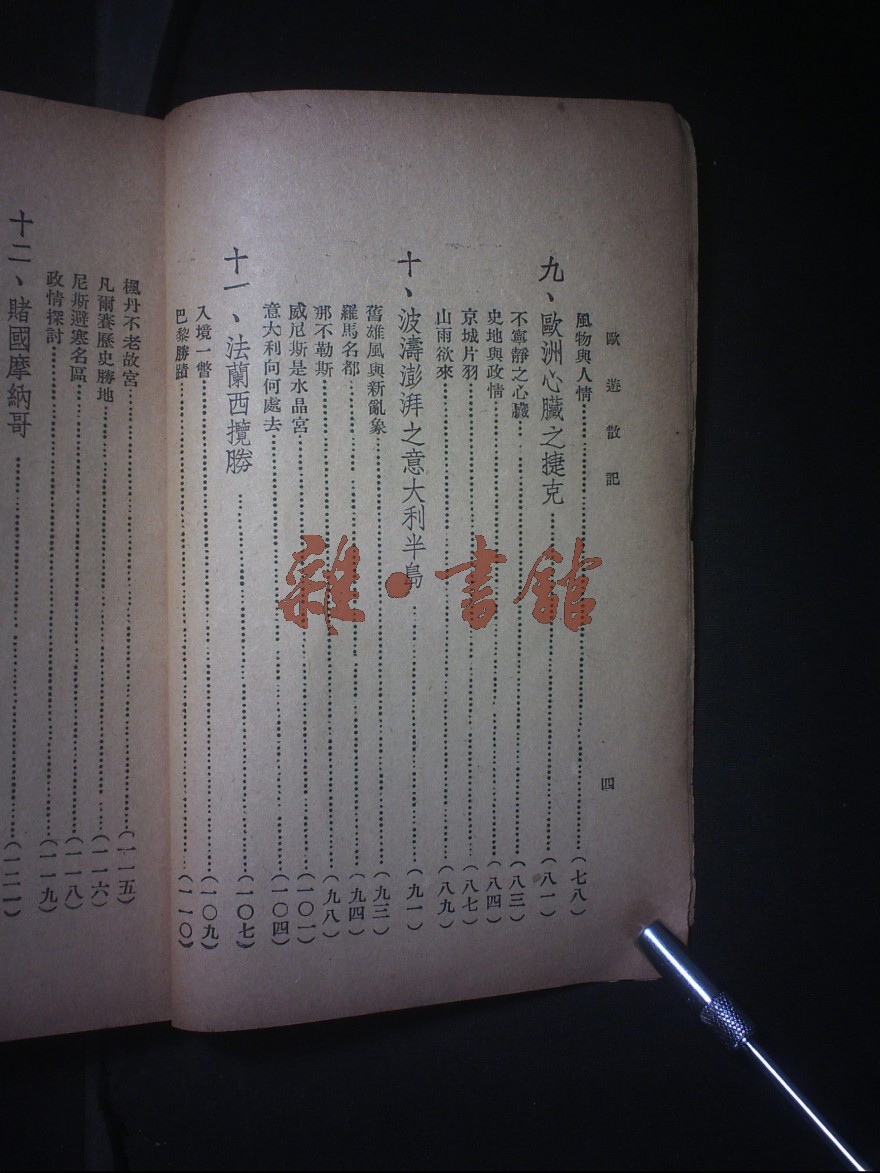 歐遊散記
四
風物與人情……(七八)
九、歐洲心臟之捷克……(八一)
不寧靜之心臟……(八三)
史地與政情……(八四)
京城片羽……(八七)
山雨欲來……(八九)
十、波濤澎湃之意大利半島……(九一)
舊雄風與新亂象……(九三)
羅馬名都……(九四)
那不勒斯……(九八)
威尼斯是水晶宮……(一〇一)
意大利向何處去……(一〇四)
十一、法蘭西攬勝……(一〇七)
入境一瞥……(一〇九)
巴黎勝蹟……(一一〇)
楓丹不老故宮……(一一五)
凡爾賽歷史勝地……(一一六)
尼斯避寒名區……(一一八)
政情探討……(一一九)
十二、賭國摩納哥……(一二一)
雜·書館